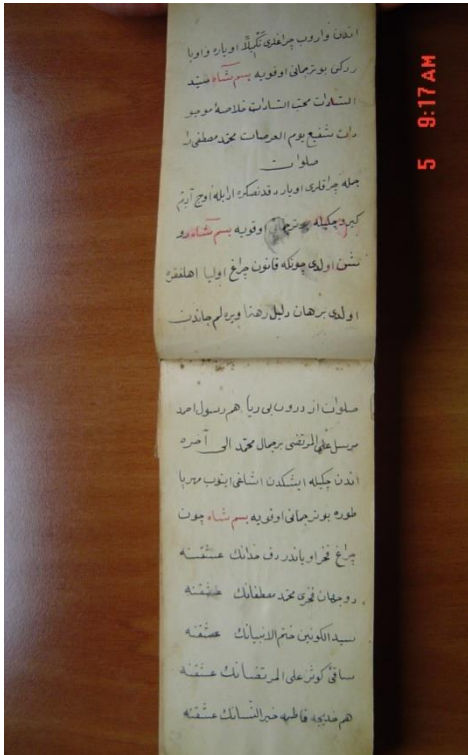 اندن واروب چراغلری تکبیلاً اویاره واویا
ررکن بو ترجمانی اوقویه بسم شاه سید
السادات محب السادات خلاصهٔ موجو
دات شفیع یوم العرصات محمد مصطفی را
صلوات
جمله چراقلری اویار دقدنصکره ارایله اوچ آدیم
کیرو چکیله بو ترجمانی اوقویه بسم شاه رو
شن اولدی چونکه قانون چراغ اولیا اهلفقره
اولدی برهان دلیل رهنما ویره لم جاندن
صلوات از درون بی ریا هم رسول احمد
مرسل علی المرتضی بر جمال محمد الی آخره
اندن چکیله ایشکدن اشاغی اینوب مهرپا
طوره بو ترجمانی اوقویه بسم شاه چون
چراغ فخر اویاندردق خدانک عشقنه
دوجهان فخری محمد مصطفانک عشقنه
سید الکونین ختم الانبیانک عشقنه
ساقئ کوثر علی المرتضانک عشقنه
هم خدیجه فاطمه خیر النسانک عشقنه
5 9:17AM